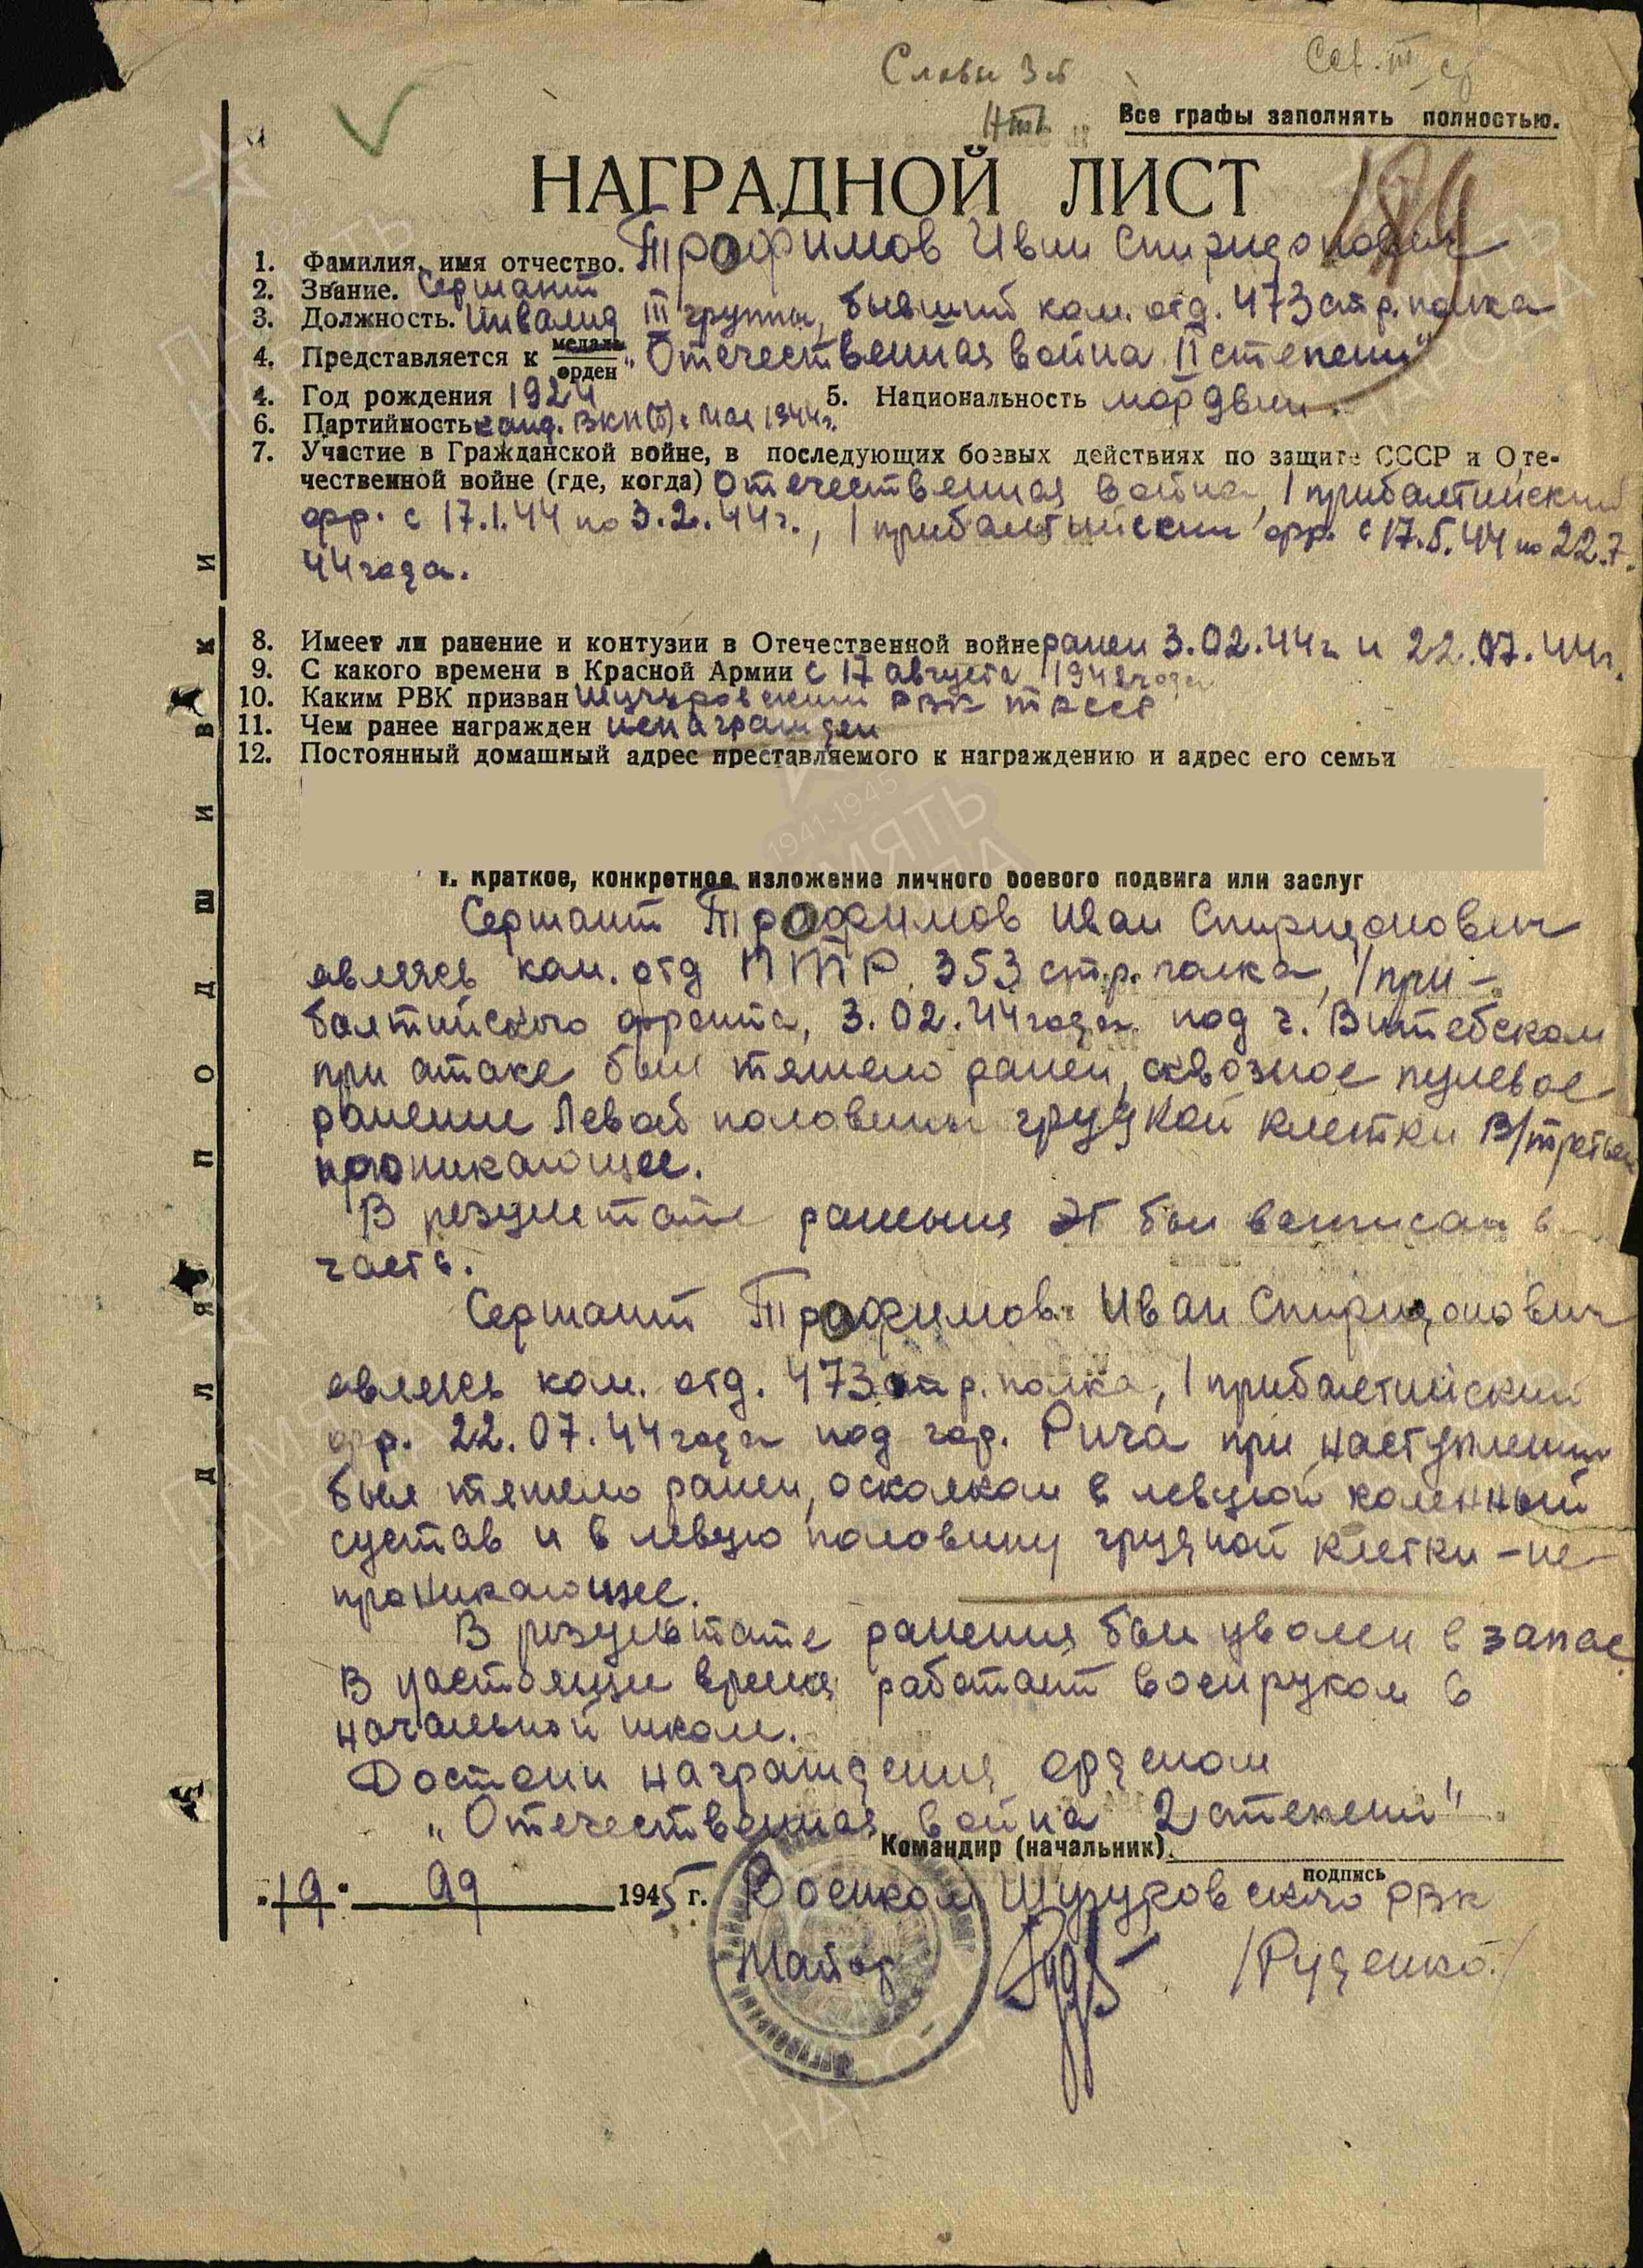 Славы 3 ст
Все графы заполнять полностью.
НАГРАДНОЙ ЛИСТ
1. Фамилия, имя отчество. Трофимов Иван Спиридонович
2. Звание. Сержант
3. Должность. Инвалид III группы, бывший ком. отд. 473 стр. полка
4. Представляется к медаль орден „Отечественная война II степени"
4. Год рождения 1924 5. Национальность мордвин.
6. Партийность канд. ВКП(б) с мая 1944 г.
7. Участие в Гражданской войне, в последующих боевых действиях по защите СССР и Оте-
чественной войне (где, когда) Отечественная война, 1 прибалтийский
фр. с 17.1.44 по 3.2.44 г., 1 прибалтийский фр. с 17.5.44 по 22.7.
44 года.
8. Имеет ли ранение и контузии в Отечественной войне ранен 3.02.44 г. и 22.07.44 г.
9. С какого времени в Красной Армии с 17 августа 1942 года
10. Каким РВК призван Шугуровским РВК ТАССР
11. Чем ранее награжден ненагражден
12. Постоянный домашный адрес преставляемого к награждению и адрес его семьи
1941-1945
ПАМЯТЬ
НАРОДА
I. Краткое, конкретное изложение личного боевого подвига или заслуг
Сержант Трофимов Иван Спиридонович
являясь ком. отд ПТР 353 стр. полка, 1 при-
балтийского фронта, 3.02.44 года под г. Витебском
при атаке был тяжело ранен, сквозное пулевое
ранение левой половины грудной клетки в/третьей
проникающее.
В результате ранения был выписан в
часть.
Сержант Трофимов Иван Спиридонович
являясь ком. отд. 473 стр. полка, 1 прибалтийский
фр. 22.07.44 года под гор. Рига при наступлении
был тяжело ранен, осколком в левый коленный
сустав и в левую половину грудной клетки – не-
проникающее.
В результате ранения был уволен в запас.
В настоящее время работает военруком в
начальной школе.
Достоин награждения орденом
„Отечественная война 2 степени"
Командир (начальник)
подпись
„19" 09 1945 г. Военком Шугуровского РВК
Майор /Руденко/
ДЛЯ ПОДШИВКИ